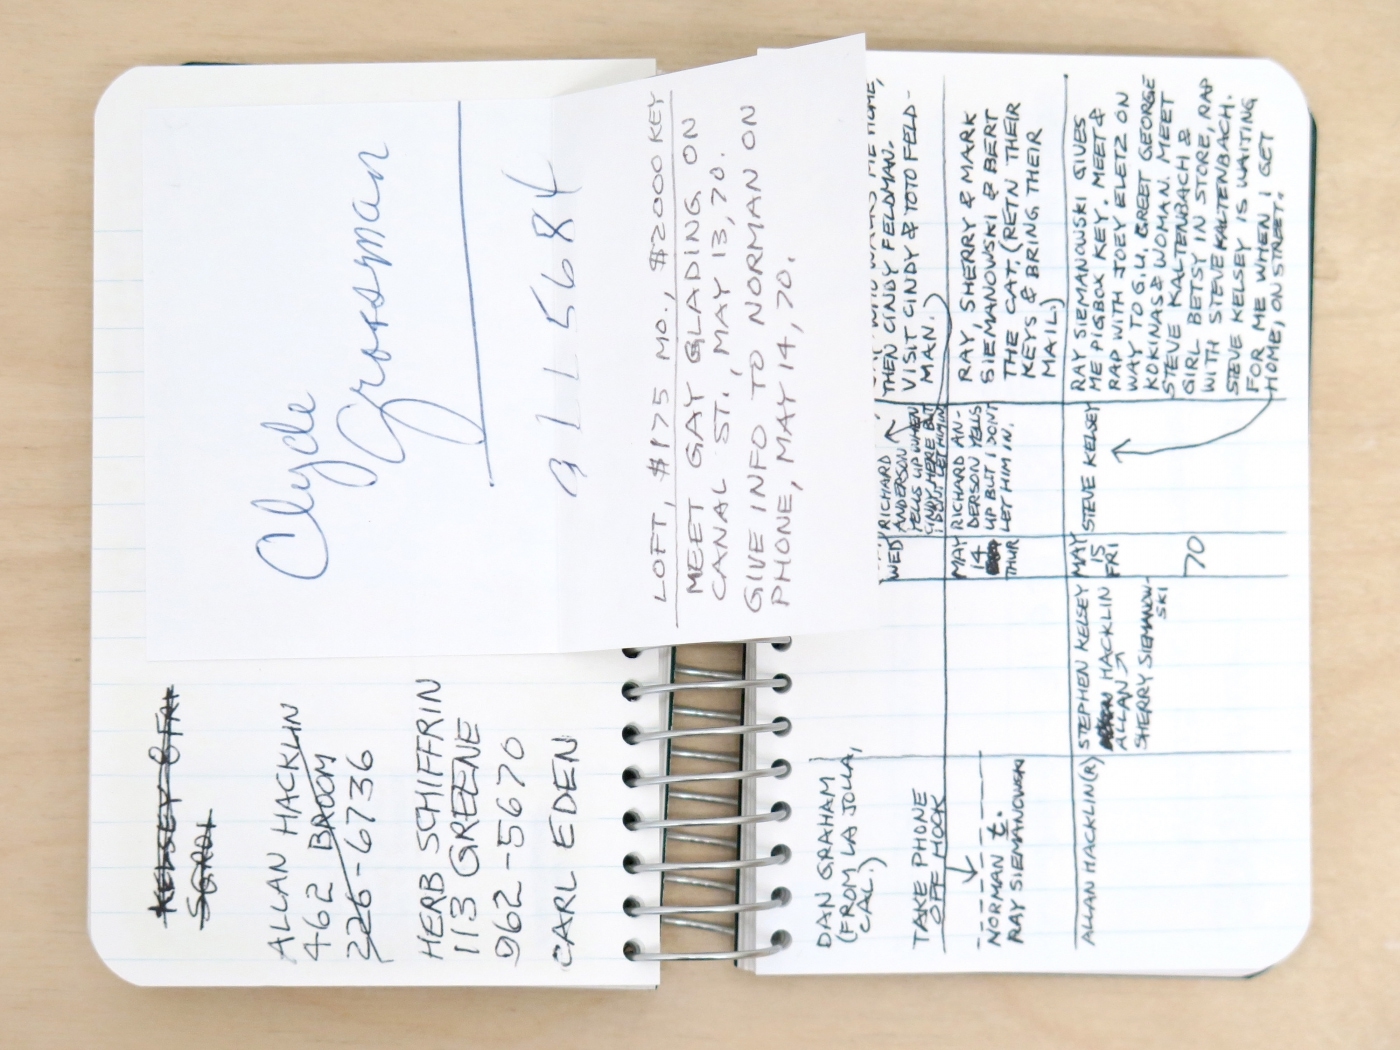 Clyde
Grossman
911 5684
LOFT, $175 MO., $2000 KEY
MEET GAY GLADING ON
CANAL ST., MAY 13, 70.
GIVE INFO TO NORMAN ON
PHONE, MAY 14, 70.
KELSEY & FAI
SGROI
ALLAN HACKLIN
462 BROOM
226-6736
HERB SCHIFFRIN
113 GREENE
962-5670
CARL EDEN
DAN GRAHAM
(FROM LA JOLLA,
CAL.)
TAKE PHONE
OFF HOOK
WED
RICHARD
ANDERSON
YELLS UP WHEN
CINDY HERE BUT
DONT LET HIM IN
THEN CINDY FELDMAN.
VISIT CINDY & TOTO FELD-
MAN.)
NORMAN &.
RAY SIEMANOWSKI
MAY
14
THUR
RICHARD AN-
DERSON YELLS
UP BUT I DONT
LET HIM IN.
RAY, SHERRY & MARK
SIEMANOWSKI & BERT
THE CAT. (RETN THEIR
KEYS & BRING THEIR
MAIL)
ALLAN HACKLIN(R)
STEPHEN KELSEY
HACKLIN
ALLAN
SHERRY SIEMANOW-
SKI
MAY
15
FRI
70
STEVE KELSEY
RAY SIEMANOWSKI GIVES
ME PIGBOX KEY. MEET &
RAP WITH JOEY ELETZ ON
WAY TO G.U. GREET GEORGE
KOKINAS & WOMAN. MEET
STEVE KALTENBACH &
GIRL BETSY IN STORE, RAP
WITH STEVE KALTENBACH.
STEVE KELSEY IS WAITING
FOR ME WHEN I GET
HOME, ON STREET.